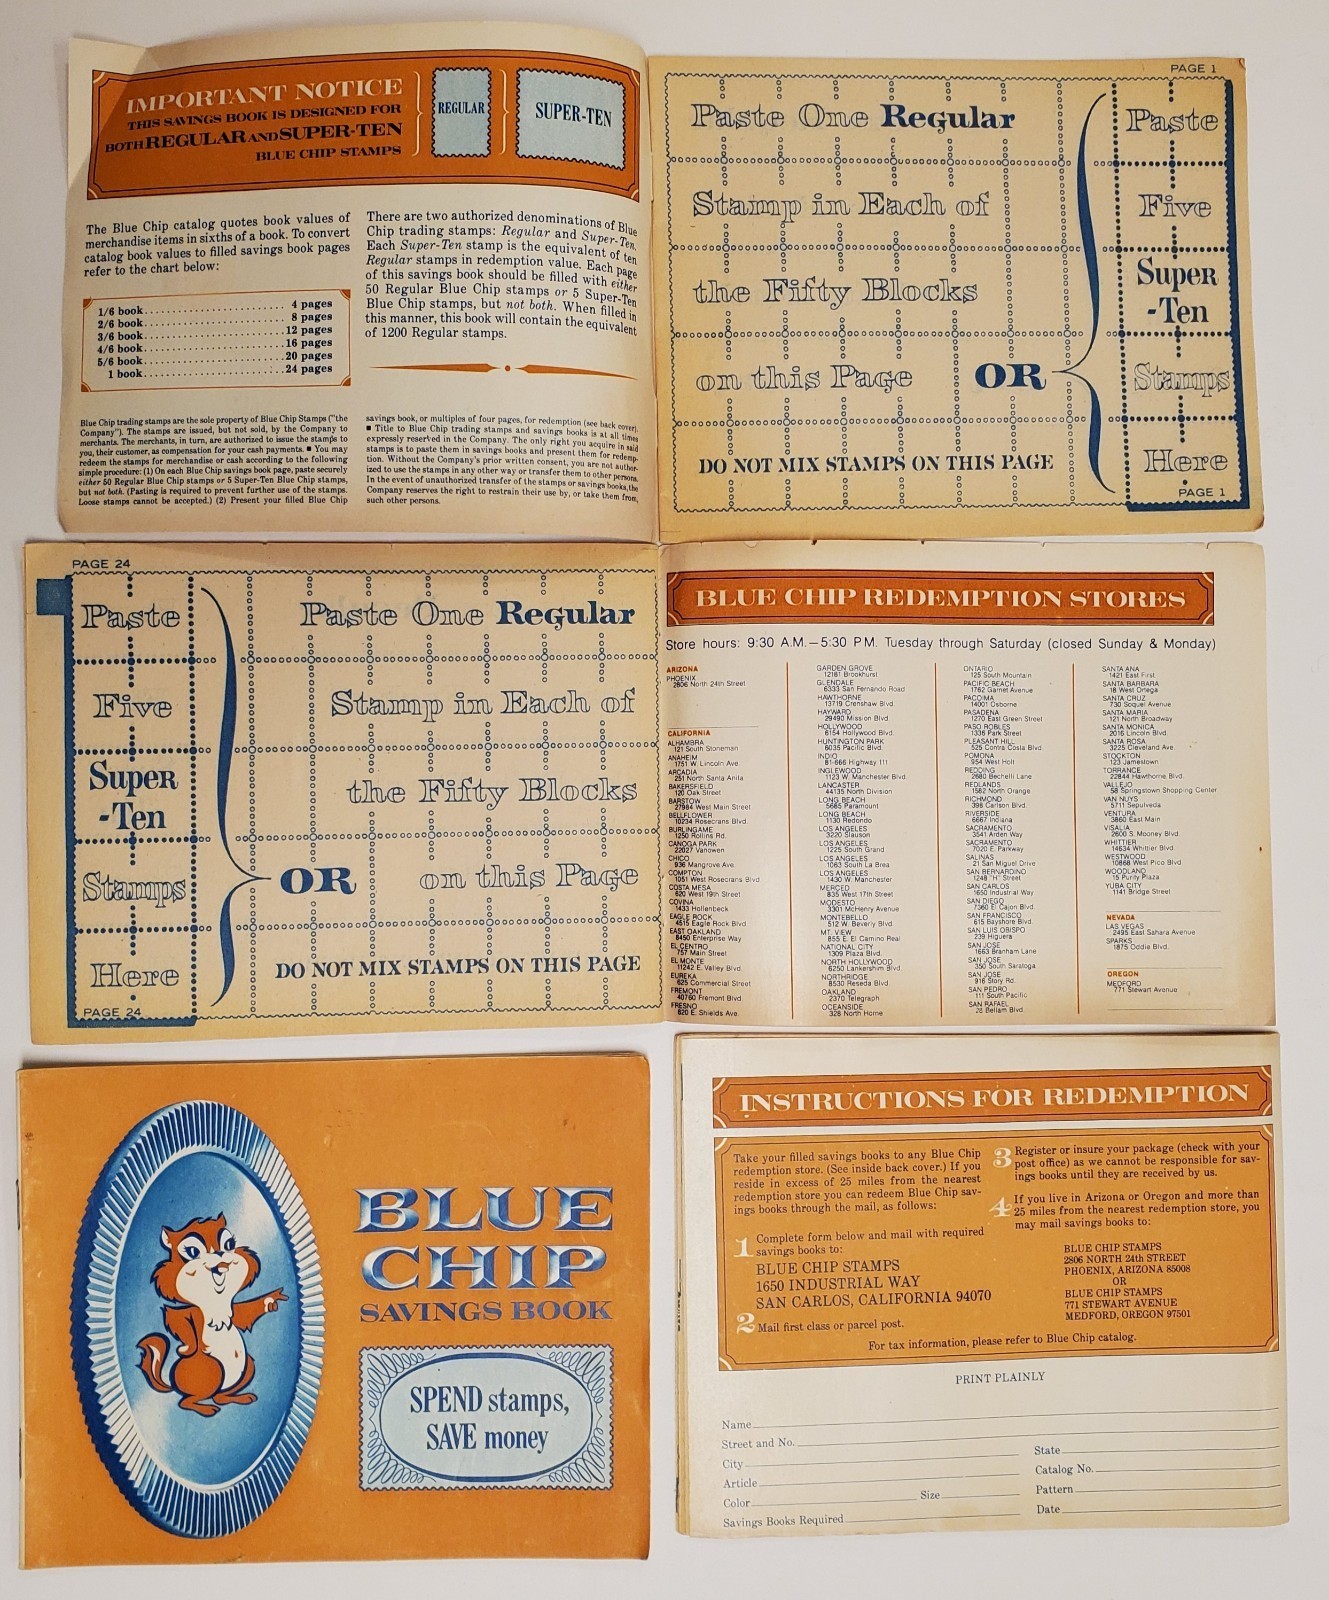 IMPORTANT NOTICE
THIS SAVINGS BOOK IS DESIGNED FOR
BOTH REGULAR AND SUPER-TEN
BLUE CHIP STAMPS
REGULAR
SUPER-TEN
The Blue Chip catalog quotes book values of
merchandise items in sixths of a book. To convert
catalog book values to filled savings book pages
refer to the chart below:
1/6 book........................ 4 pages
2/6 book........................ 8 pages
3/6 book........................12 pages
4/6 book........................16 pages
5/6 book........................20 pages
1 book........................24 pages
There are two authorized denominations of Blue
Chip trading stamps: Regular and Super-Ten.
Each Super-Ten stamp is the equivalent of ten
Regular stamps in redemption value. Each page
of this savings book should be filled with either
50 Regular Blue Chip stamps or 5 Super-Ten
Blue Chip stamps, but not both. When filled in
this manner, this book will contain the equivalent
of 1200 Regular stamps.
Blue Chip trading stamps are the sole property of Blue Chip Stamps ("the
Company"). The stamps are issued, but not sold, by the Company to
merchants. The merchants, in turn, are authorized to issue the stamps to
you, their customer, as compensation for your cash payments. ■ You may
redeem the stamps for merchandise or cash according to the following
simple procedure: (1) On each Blue Chip savings book page, paste securely
either 50 Regular Blue Chip stamps or 5 Super-Ten Blue Chip stamps,
but not both. (Pasting is required to prevent further use of the stamps.
Loose stamps cannot be accepted.) (2) Present your filled Blue Chip
savings book, or multiples of four pages, for redemption (see back cover).
■ Title to Blue Chip trading stamps and savings books is at all times
expressly reserved in the Company. The only right you acquire in said
stamps is to paste them in savings books and present them for redemp-
tion. Without the Company's prior written consent, you are not author-
ized to use the stamps in any other way or transfer them to other persons.
In the event of unauthorized transfer of the stamps or savings books, the
Company reserves the right to restrain their use by, or take them from,
such other persons.
PAGE 1
Paste One Regular
Stamp in Each of
the Fifty Blocks
on this Page
OR
DO NOT MIX STAMPS ON THIS PAGE
Paste
Five
Super
-Ten
Stamps
Here
PAGE 1
PAGE 24
Paste
Five
Super
-Ten
Stamps
Here
PAGE 24
Paste One Regular
Stamp in Each of
the Fifty Blocks
OR
on this Page
DO NOT MIX STAMPS ON THIS PAGE
BLUE CHIP REDEMPTION STORES
Store hours: 9:30 A.M.—5:30 P.M. Tuesday through Saturday (closed Sunday & Monday)
ARIZONA
PHOENIX
2806 North 24th Street
CALIFORNIA
ALHAMBRA
121 South Stoneman
ANAHEIM
1751 W. Lincoln Ave.
ARCADIA
251 North Santa Anita
BAKERSFIELD
120 Oak Street
BARSTOW
27984 West Main Street
BELLFLOWER
10234 Rosecrans Blvd.
BURLINGAME
1250 Rollins Rd.
CANOGA PARK
22027 Vanowen
CHICO
936 Mangrove Ave.
COMPTON
1051 West Rosecrans Blvd.
COSTA MESA
620 West 19th Street
COVINA
1433 Hollenbeck
EAGLE ROCK
4515 Eagle Rock Blvd
EAST OAKLAND
8450 Enterprise Way
EL CENTRO
757 Main Street
EL MONTE
11242 E. Valley Blvd.
EUREKA
625 Commercial Street
FREMONT
40760 Fremont Blvd.
FRESNO
820 E. Shields Ave.
GARDEN GROVE
12181 Brookhurst
GLENDALE
6333 San Fernando Road
HAWTHORNE
13719 Crenshaw Blvd.
HAYWARD
29490 Mission Blvd.
HOLLYWOOD
6154 Hollywood Blvd.
HUNTINGTON PARK
6035 Pacific Blvd.
INDIO
81-866 Highway 111
INGLEWOOD
1123 W. Manchester Blvd.
LANCASTER
44135 North Division
LONG BEACH
5685 Paramount
LONG BEACH
1130 Redondo
LOS ANGELES
3220 Slauson
LOS ANGELES
1225 South Grand
LOS ANGELES
1063 South La Brea
LOS ANGELES
1430 W. Manchester
MERCED
835 West 17th Street
MODESTO
3301 McHenry Avenue
MONTEBELLO
512 W. Beverly Blvd.
MT. VIEW
855 E. El Camino Real
NATIONAL CITY
1309 Plaza Blvd.
NORTH HOLLYWOOD
6250 Lankershim Blvd.
NORTHRIDGE
8530 Reseda Blvd.
OAKLAND
2370 Telegraph
OCEANSIDE
328 North Horne
ONTARIO
125 South Mountain
PACIFIC BEACH
1762 Garnet Avenue
PACOIMA
14001 Osborne
PASADENA
1270 East Green Street
PASO ROBLES
1336 Park Street
PLEASANT HILL
525 Contra Costa Blvd.
POMONA
954 West Holt
REDDING
2680 Bechelli Lane
REDLANDS
1582 North Orange
RICHMOND
398 Carlson Blvd.
RIVERSIDE
6667 Indiana
SACRAMENTO
3541 Arden Way
SACRAMENTO
7020 E. Parkway
SALINAS
21 San Miguel Drive
SAN BERNARDINO
1248 "H" Street
SAN CARLOS
1650 Industrial Way
SAN DIEGO
7360 El Cajon Blvd.
SAN FRANCISCO
615 Bayshore Blvd.
SAN LUIS OBISPO
239 Higuera
SAN JOSE
1663 Branham Lane
SAN JOSE
350 South Saratoga
SAN JOSE
916 Story Rd.
SAN PEDRO
111 South Pacific
SAN RAFAEL
28 Bellam Blvd.
SANTA ANA
1421 East First
SANTA BARBARA
18 West Ortega
SANTA CRUZ
730 Soquel Avenue
SANTA MARIA
121 North Broadway
SANTA MONICA
2016 Lincoln Blvd.
SANTA ROSA
3225 Cleveland Ave.
STOCKTON
123 Jamestown
TORRANCE
22844 Hawthorne Blvd.
VALLEJO
58 Springstown Shopping Center
VAN NUYS
5711 Sepulveda
VENTURA
3860 East Main
VISALIA
2600 S. Mooney Blvd.
WHITTIER
14634 Whittier Blvd.
WESTWOOD
10868 West Pico Blvd.
WOODLAND
15 Purity Plaza
YUBA CITY
1141 Bridge Street
NEVADA
LAS VEGAS
2495 East Sahara Avenue
SPARKS
1875 Oddie Blvd.
OREGON
MEDFORD
771 Stewart Avenue
BLUE
CHIP
SAVINGS BOOK
SPEND stamps,
SAVE money
INSTRUCTIONS FOR REDEMPTION
Take your filled savings books to any Blue Chip
redemption store. (See inside back cover.) If you
reside in excess of 25 miles from the nearest
redemption store you can redeem Blue Chip sav-
ings books through the mail, as follows:
1 Complete form below and mail with required
savings books to:
BLUE CHIP STAMPS
1650 INDUSTRIAL WAY
SAN CARLOS, CALIFORNIA 94070
2 Mail first class or parcel post.
3 Register or insure your package (check with your
post office) as we cannot be responsible for sav-
ings books until they are received by us.
4 If you live in Arizona or Oregon and more than
25 miles from the nearest redemption store, you
may mail savings books to:
BLUE CHIP STAMPS
2806 NORTH 24th STREET
PHOENIX, ARIZONA 85008
OR
BLUE CHIP STAMPS
771 STEWART AVENUE
MEDFORD, OREGON 97501
For tax information, please refer to Blue Chip catalog.
PRINT PLAINLY
Name
Street and No.
City
State
Article
Catalog No.
Color
Size
Pattern
Savings Books Required
Date